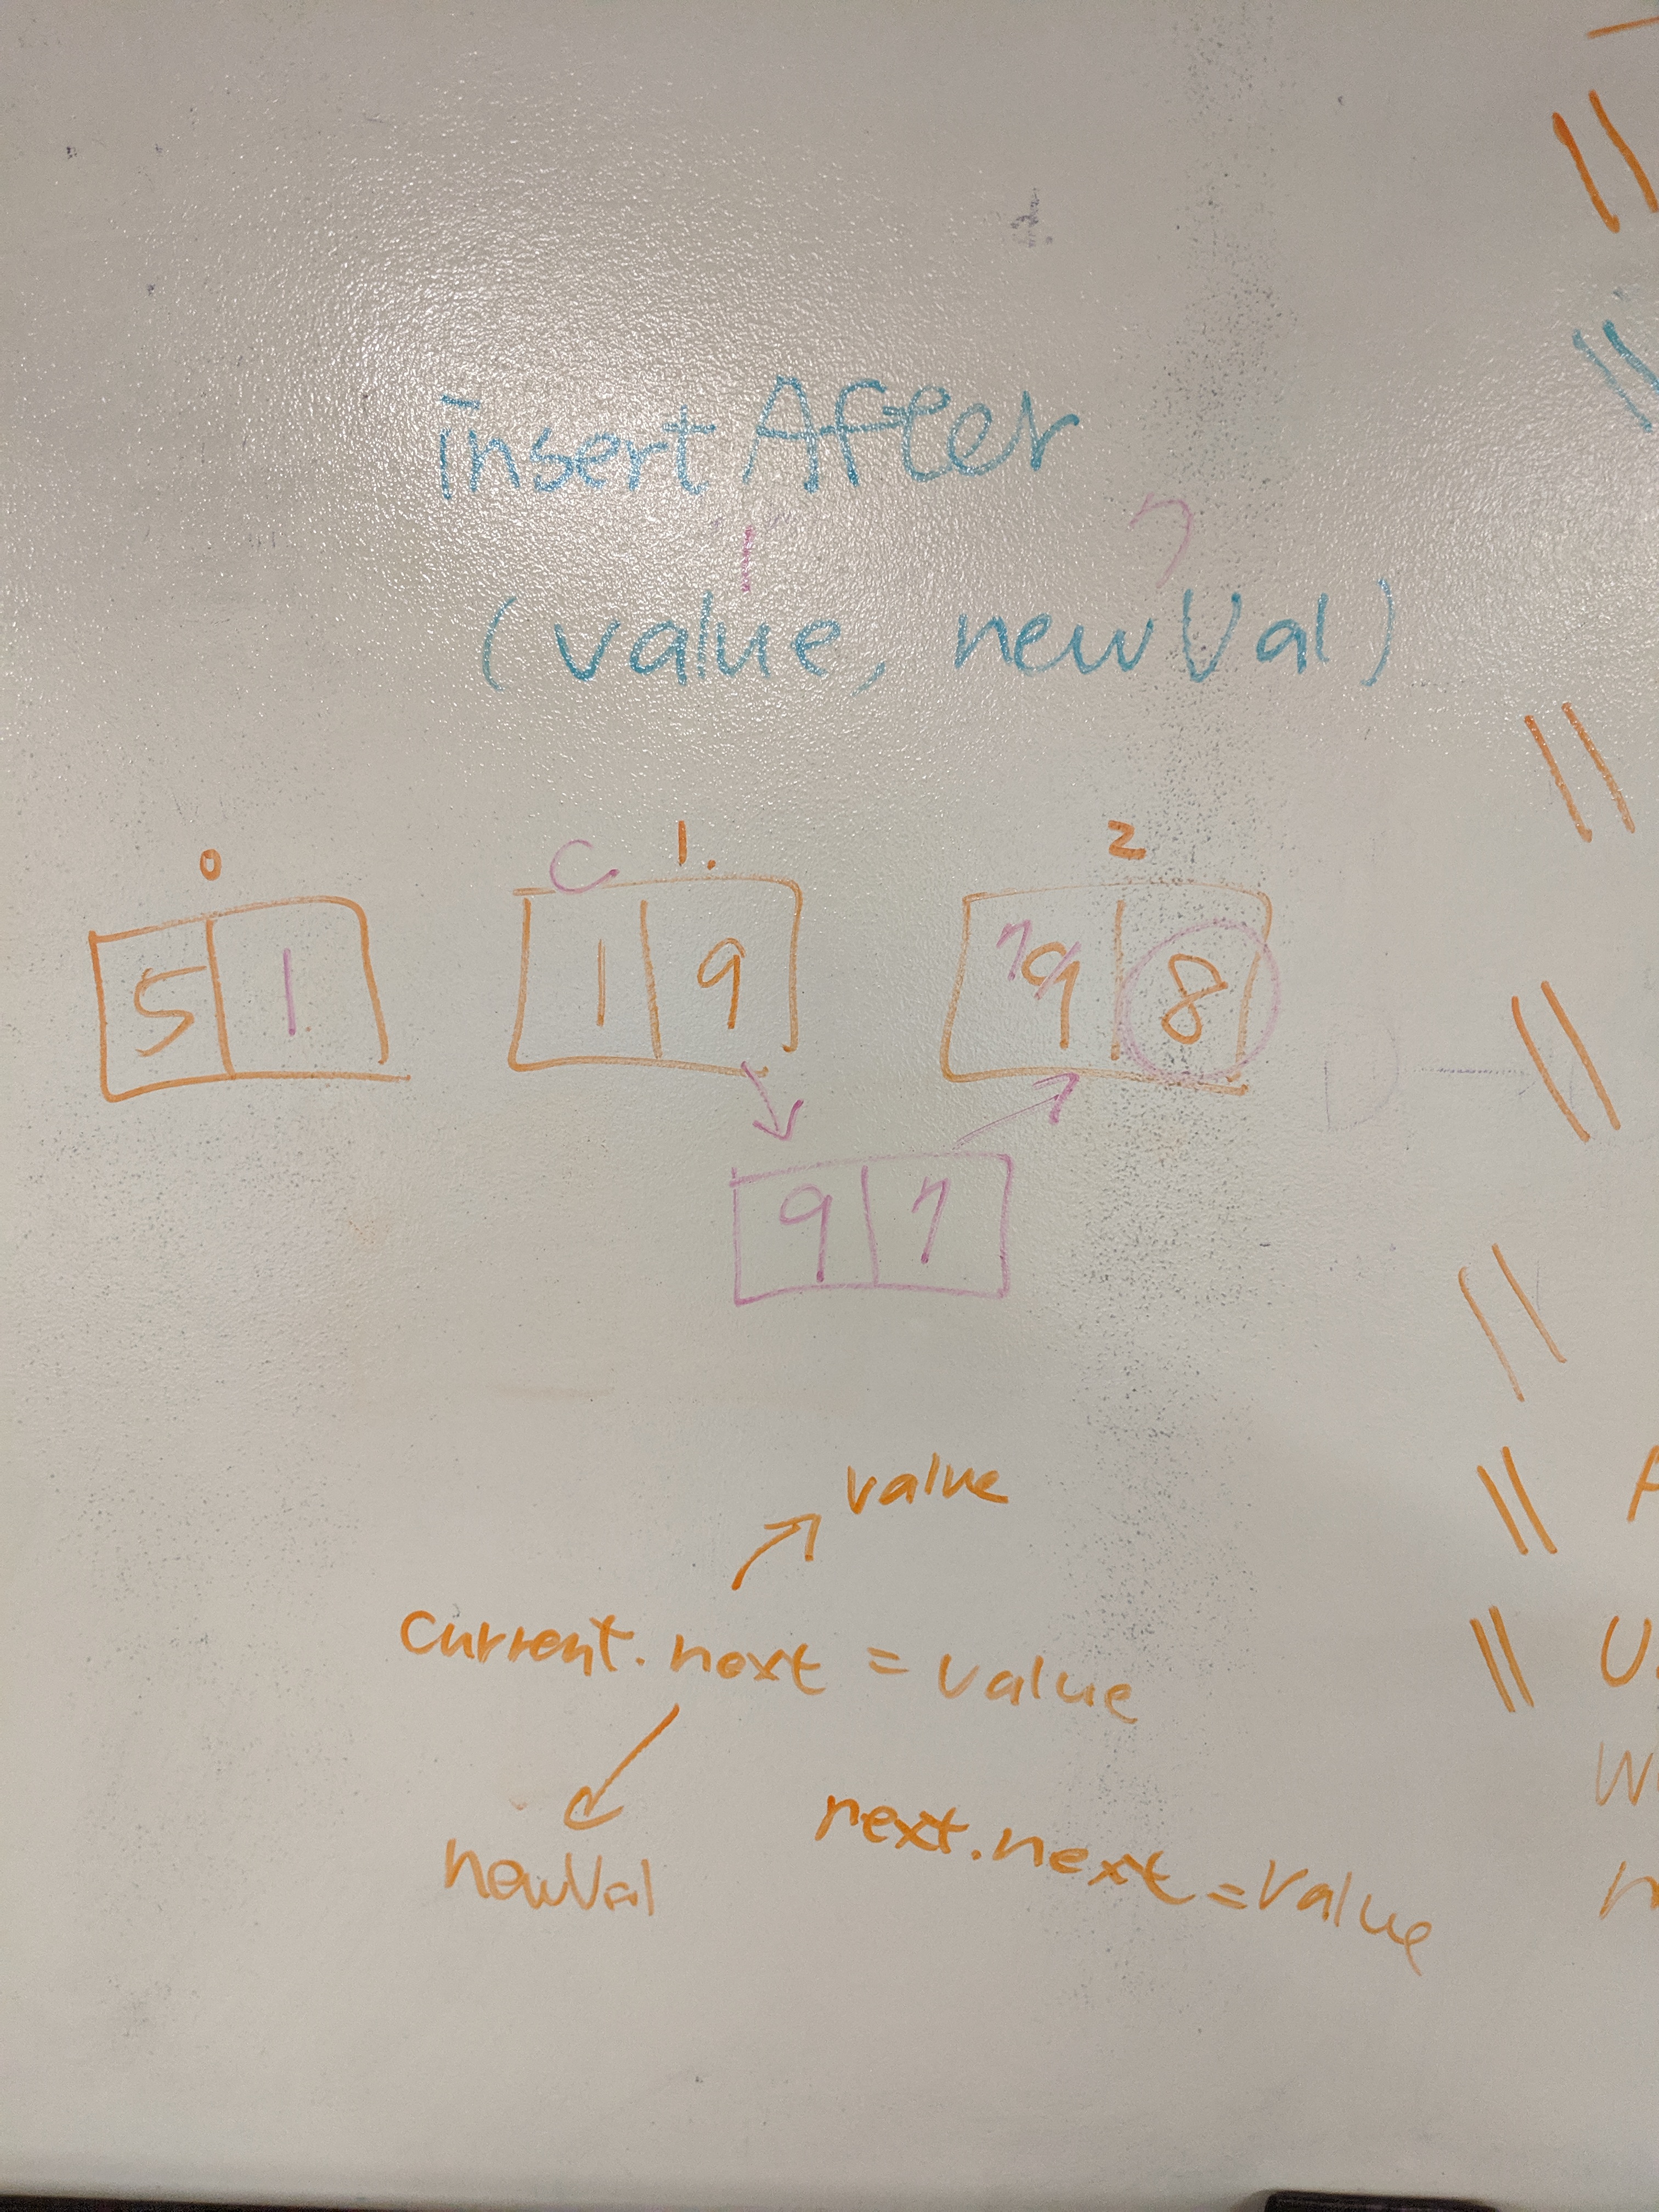 insertAfter
1 7
(value, newVal)
0 C 1. 2
5 1 1 9 7 9 8
9 7
value
current.next = value
newVal
next.next = value